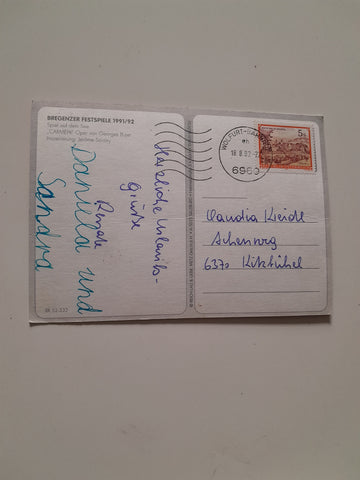 BREGENZER FESTSPIELE 1991/92
Spiel auf dem See
"CARMEN" Oper von Georges Bizet
Inszenierung: Jérôme Savary
Herzliche Urlaubs-
grüße
Renate
Daniela und
Sandra
BR 53-232
WOLFURT-BAHNHOF
18.8.92
6960
5 S
Claudia Kreidl
Achenweg
6370 Kitzbühel